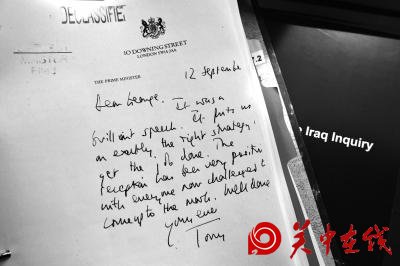 DECLASSIFIED
MINISTER
FILES
10 DOWNING STREET
LONDON SW1A 2AA
THE PRIME MINISTER
12 September
Dear George. It was a
brilliant speech. It puts us
on exactly the right strategy,
get the job done. The
reception has been very positive
with everyone now challenged to
come up to the mark. Well done
Yours ever
Tony
.2
e Iraq Inquiry
关中在线